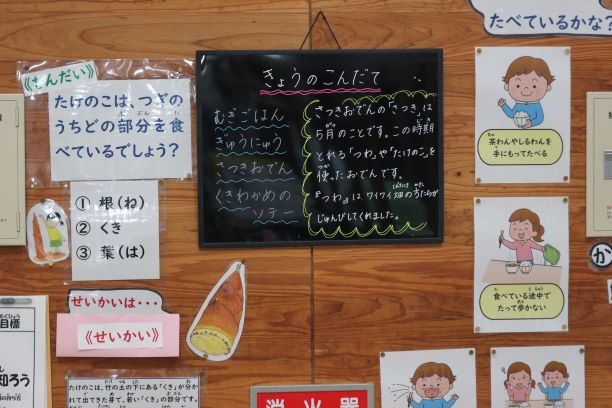 たべているかな?
《もんだい》
たけのこは、つぎの
うちどの部分を食
べているでしょう?
① 根(ね)
② くき
③ 葉(は)
せいかいは・・・
《せいかい》
たけのこは、竹の土の下にある「くき」が分か
れて出てきた芽で、若い「くき」の部分です。
きょうのこんだて
むぎごはん
ぎゅうにゅう
さつきおでん
くきわかめの
ソテー
さつきおでんの「さつき」は
5月のことです。この時期
とれる「つわ」や「たけのこ」を
使ったおでんです。
『つわ』は ワイワイ畑の方たちが
じゅんびしてくれました。
茶わんやしるわんを
手にもってたべる
食べている途中で
たって歩かない
か
目標
知ろう
消火器